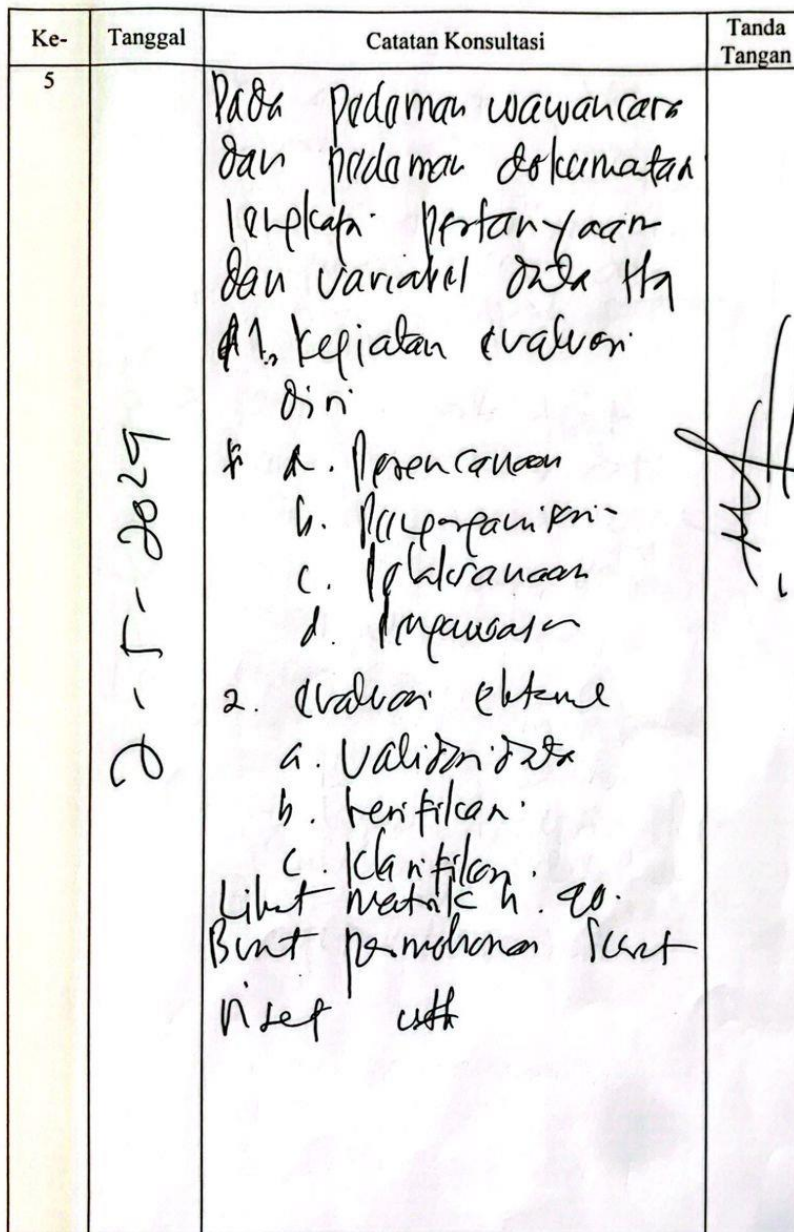 Ke-
Tanggal
Catatan Konsultasi
Tanda
Tangan
5
2-5-2024
Pada pedoman wawancara
dan pedoman dokumentasi
lengkapi pertanyaan
dan variabel data ttg
1. Kegiatan evaluasi
diri
a. Perencanaan
b. Pengorganisasi
c. Pelaksanaan
d. Pengawasan
2. evaluasi
a. Validasi data
b. Verifikasi
c. Klarifikasi
Lihat matrik h. 90.
Buat permohonan surat
riset